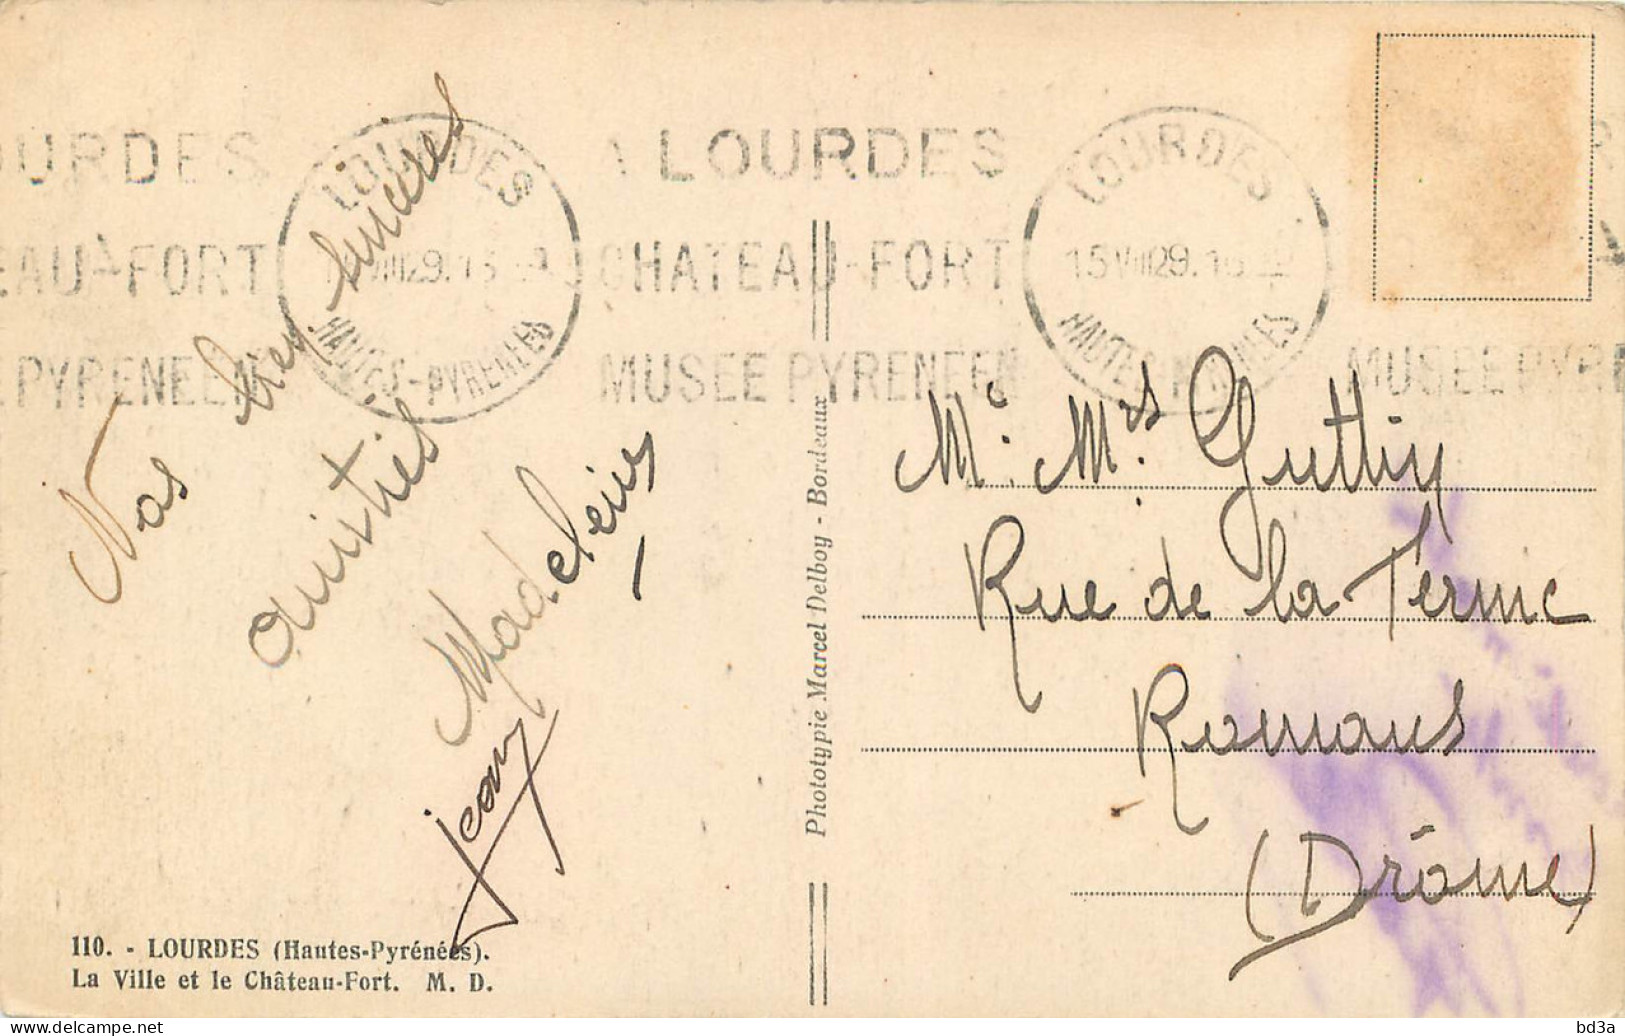 OURDES
LOURDES
A LOURDES
LOURDES
EAU-FORT
VIII29.15
CHATEAU-FORT
15VIII29.15
E PYRENEEN
HAUTES-PYRENEES
MUSEE PYRENEEN
HAUTES-PYRENEES
MUSEE PYRE
Nos bien sincères
amitiés
Madeleine
Jean
Phototypie Marcel Delboy - Bordeaux
Mr. Mrs.
Rue de la
Romans
(Drôme)
110. - LOURDES (Hautes-Pyrénées).
La Ville et le Château-Fort. M. D.
delcampe.net
bd3a